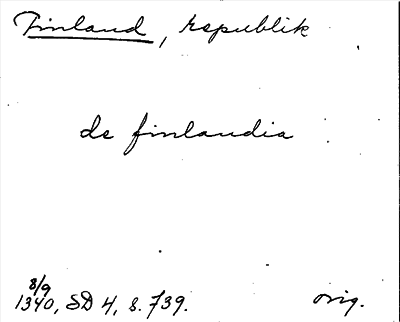 Finland, republik
de finlandia
8/9
1340, SD 4, s. 739. orig.